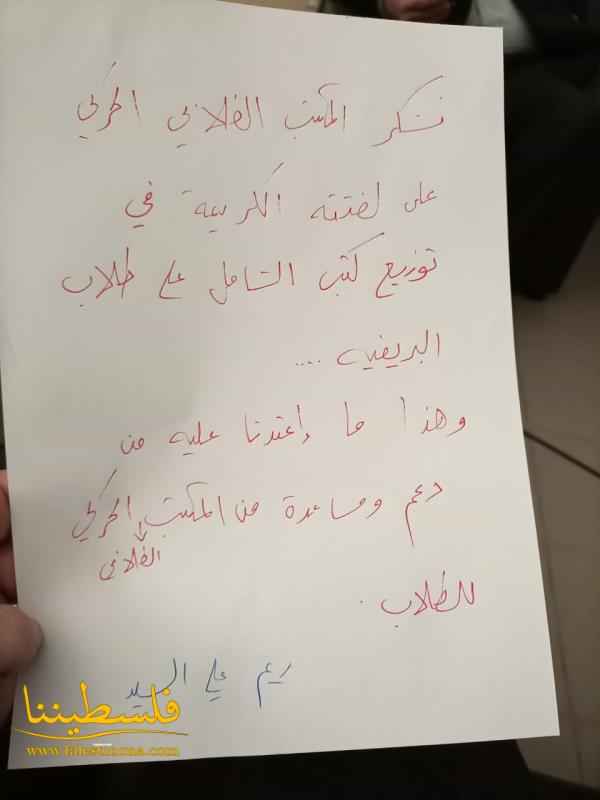 نشكر المكتب الطلابي الحركي
على لفتته الكريمة في
توزيع كتب الشامل على طلاب
البريفيه ....
وهذا ما إعتدنا عليه من
دعم ومساعدة من المكتب الحركي
الطلابي
للطلاب.
ريم علي السيد
فلسطيننا
www.falestinona.com